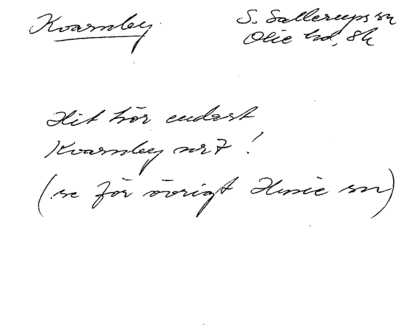 Kvarnby
S. Sallerups sn
Oxie hd, Sk
Hit hör endast
Kvarnby nr 7 !
(se för övrigt Husie sn)